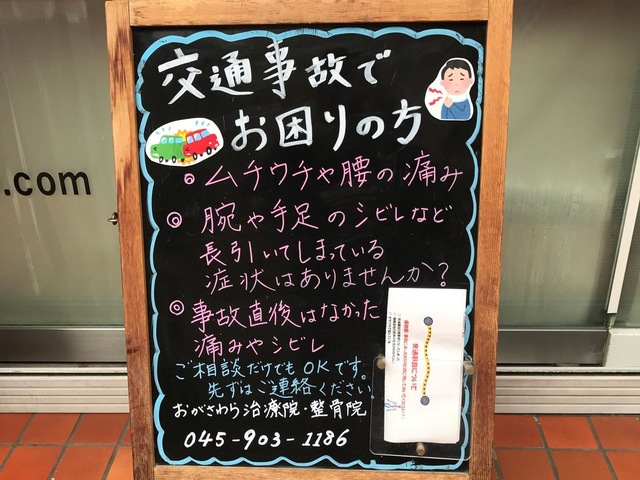 交通事故で
お困りの方
◎ ムチウチや腰の痛み
◎ 腕や手足のシビレなど
長引いてしまっている
症状はありませんか?
◎ 事故直後はなかった
痛みやシビレ
ご相談だけでもOKです。
先ずはご連絡ください。
おがさわら治療院・整骨院
045-903-1186
.com
交通事故について